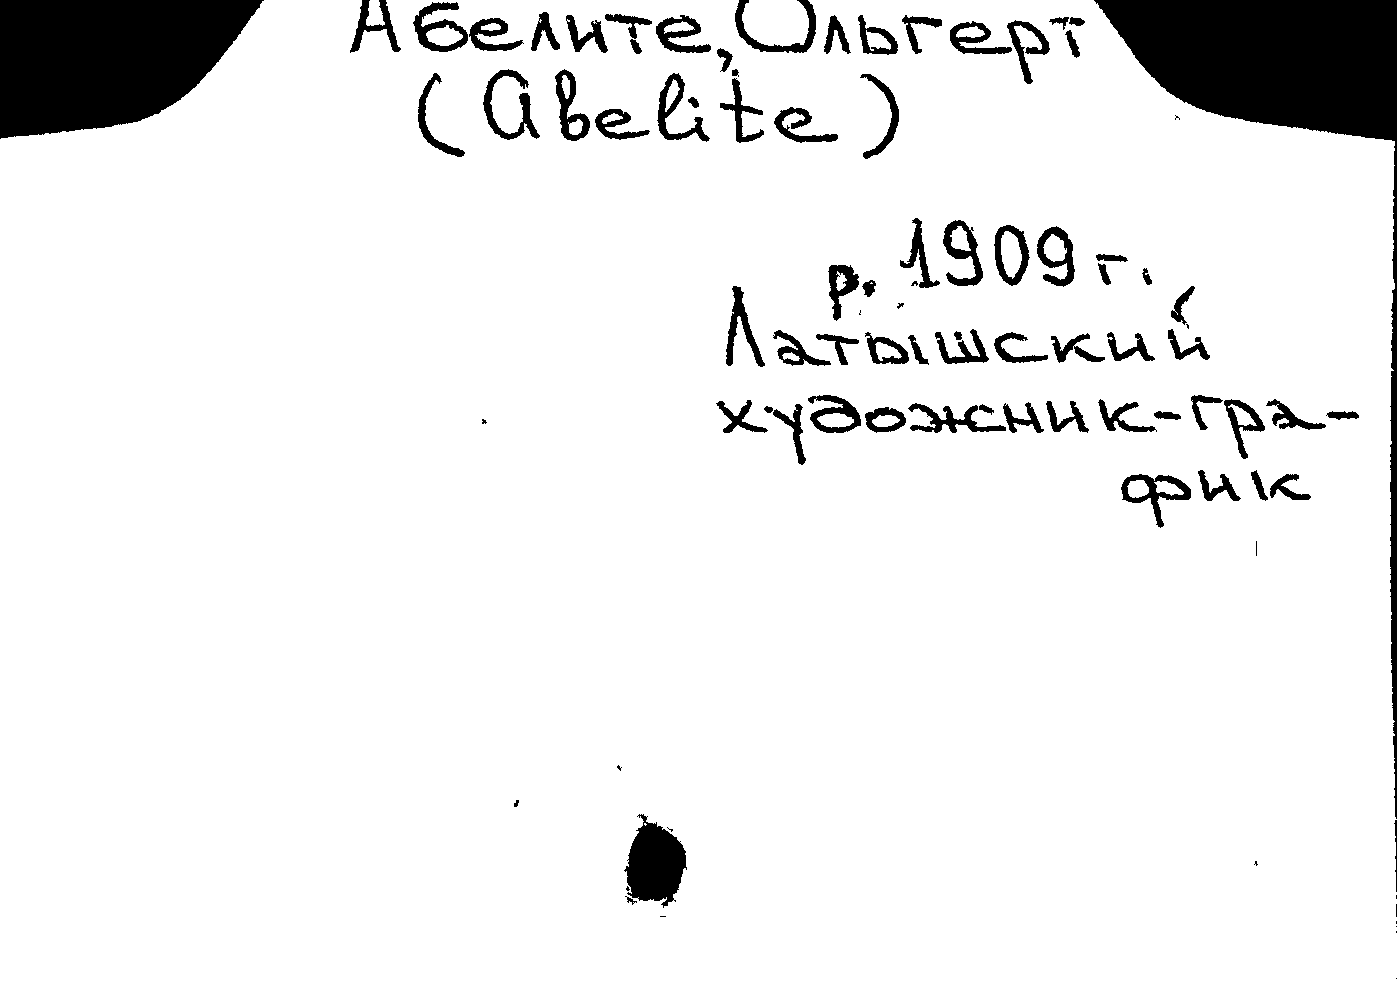 Абелите, Ольгерт
(Abelite)
р. 1909 г.
Латышский
художник-гра-
фик